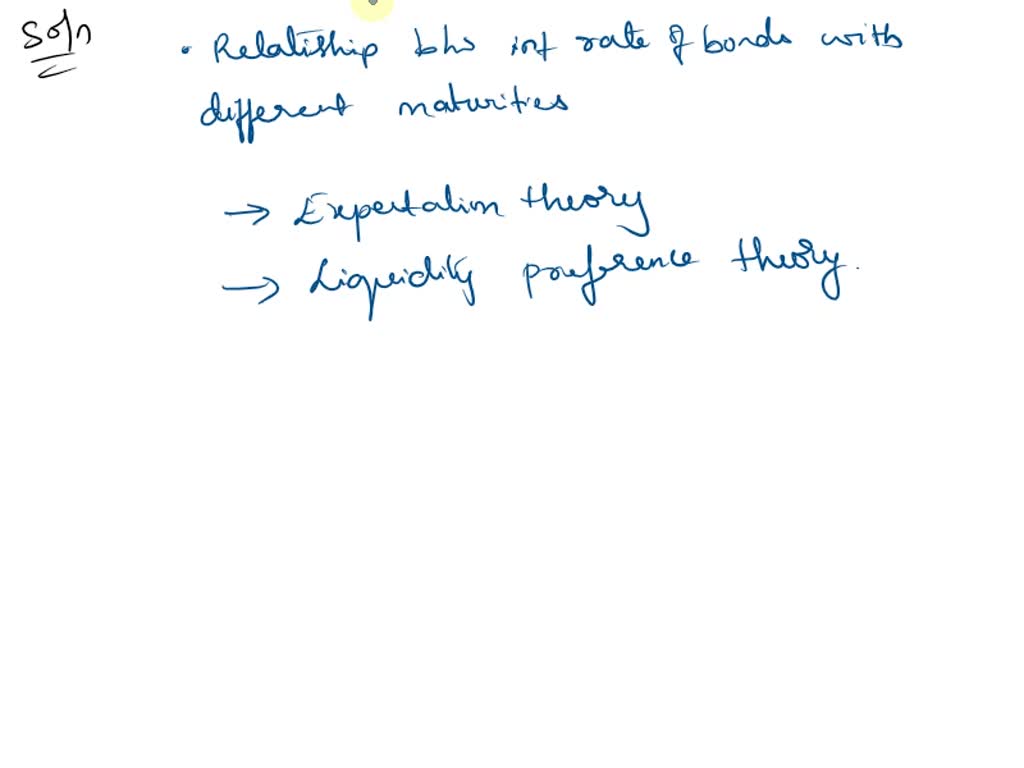 Soln
• Relatiship bhs int rate of bonds with
different maturities
→ Expectation theory
→ Liquidity preference theory.